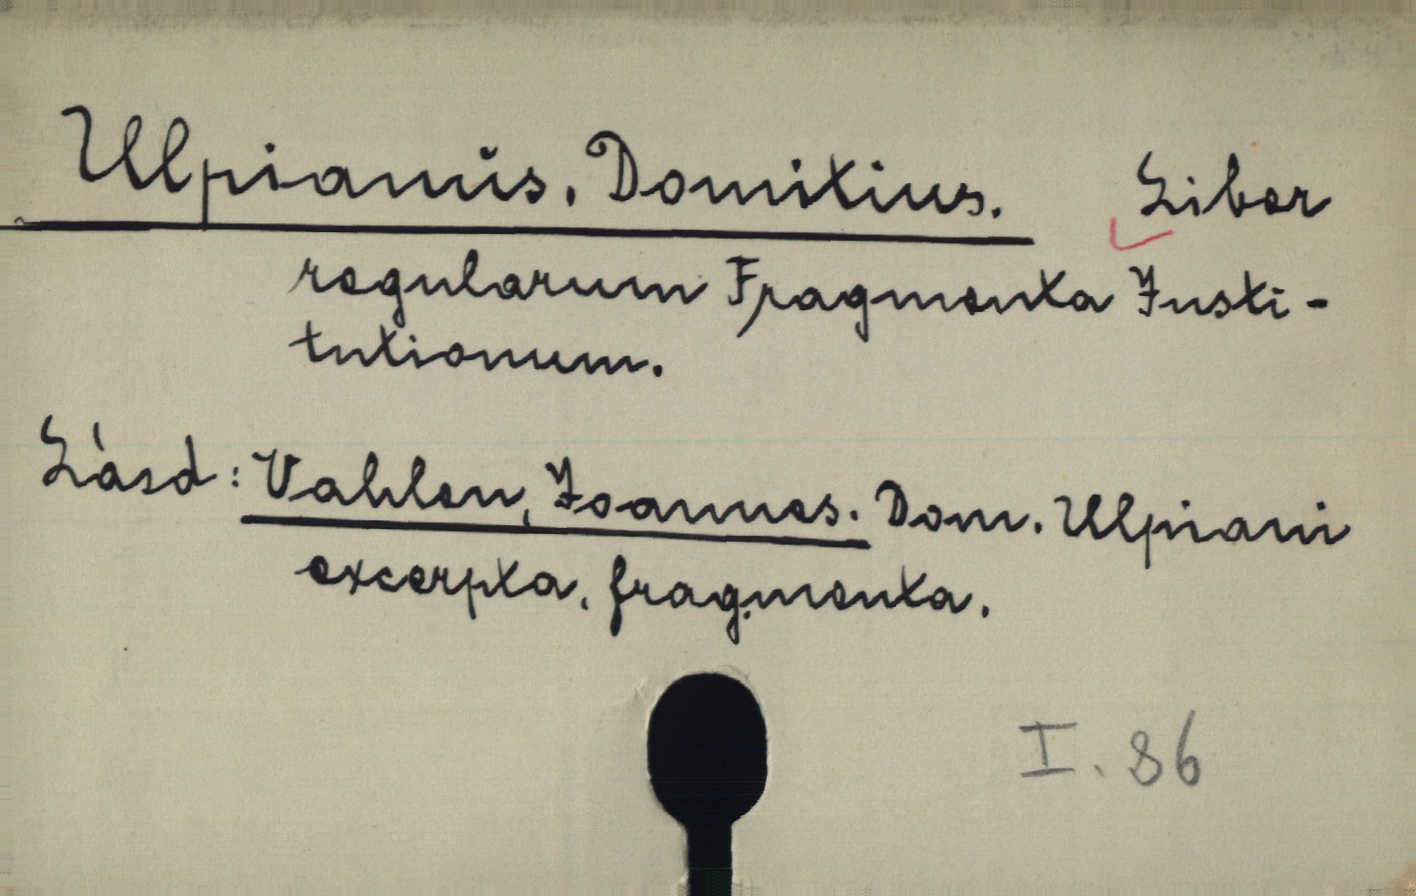 Ulpianus, Domitius. Liber
regularum Fragmenta Insti-
tutionum.
Lásd: Vahlen, Joannes. Dom. Ulpiani
excerpta, fragmenta.
I. 86